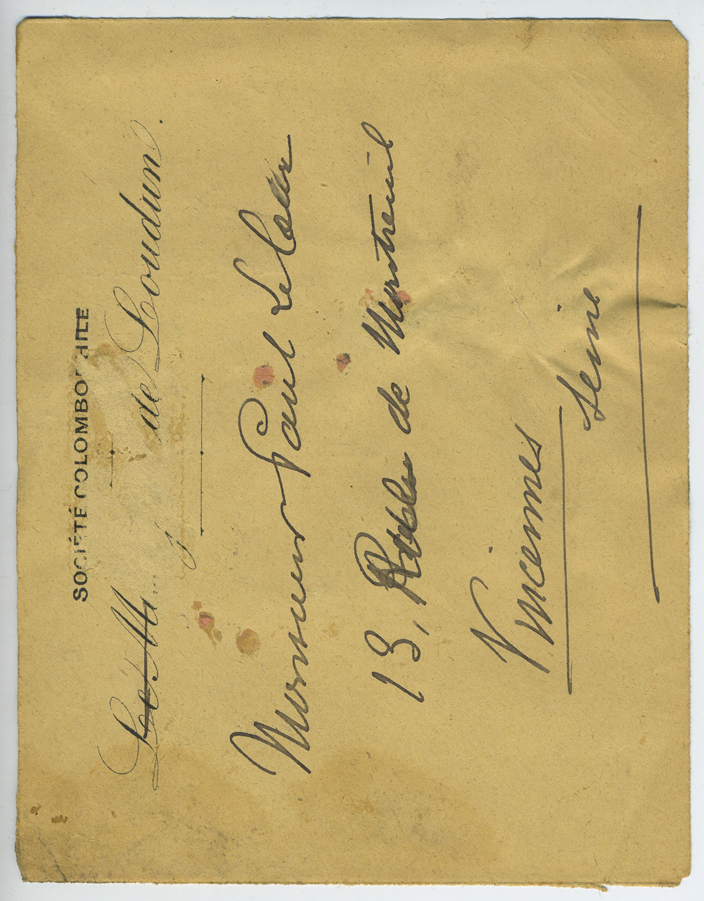 SOCIÉTÉ COLOMBOPHILE
de Loudun.
Monsieur Paul
13, de Montreuil
Vincennes
Seine